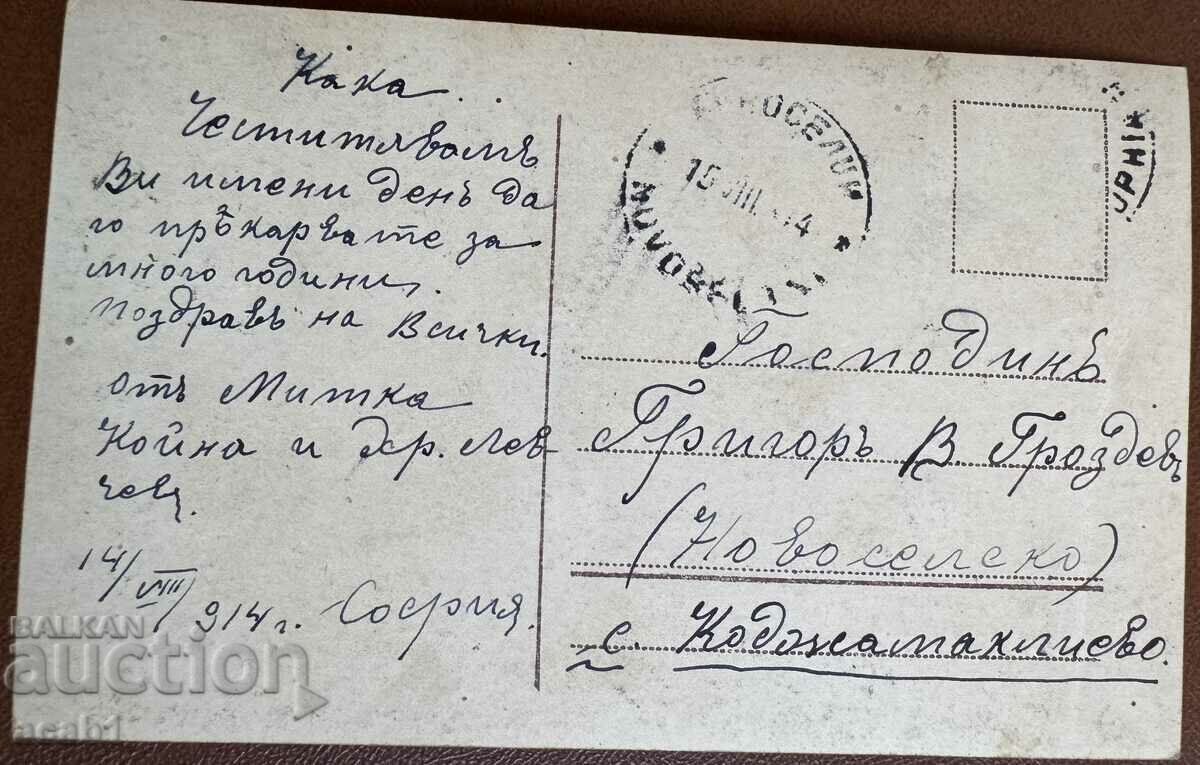 Кака...
Честитявамъ
Ви имени денъ да
го прѣкарвате за
много години,
поздравъ на Всички.
отъ Митка
Койна и Хр. Лев-
чеви.
14/VIII/914 г. София.
НОВОСЕЛЦИ
15.VIII.14
NOVOSELTZI
Господинъ
Григоръ В. Гроздевъ
(Новоселско)
с. Коджамахлиево.
BALKAN
auction
acab1